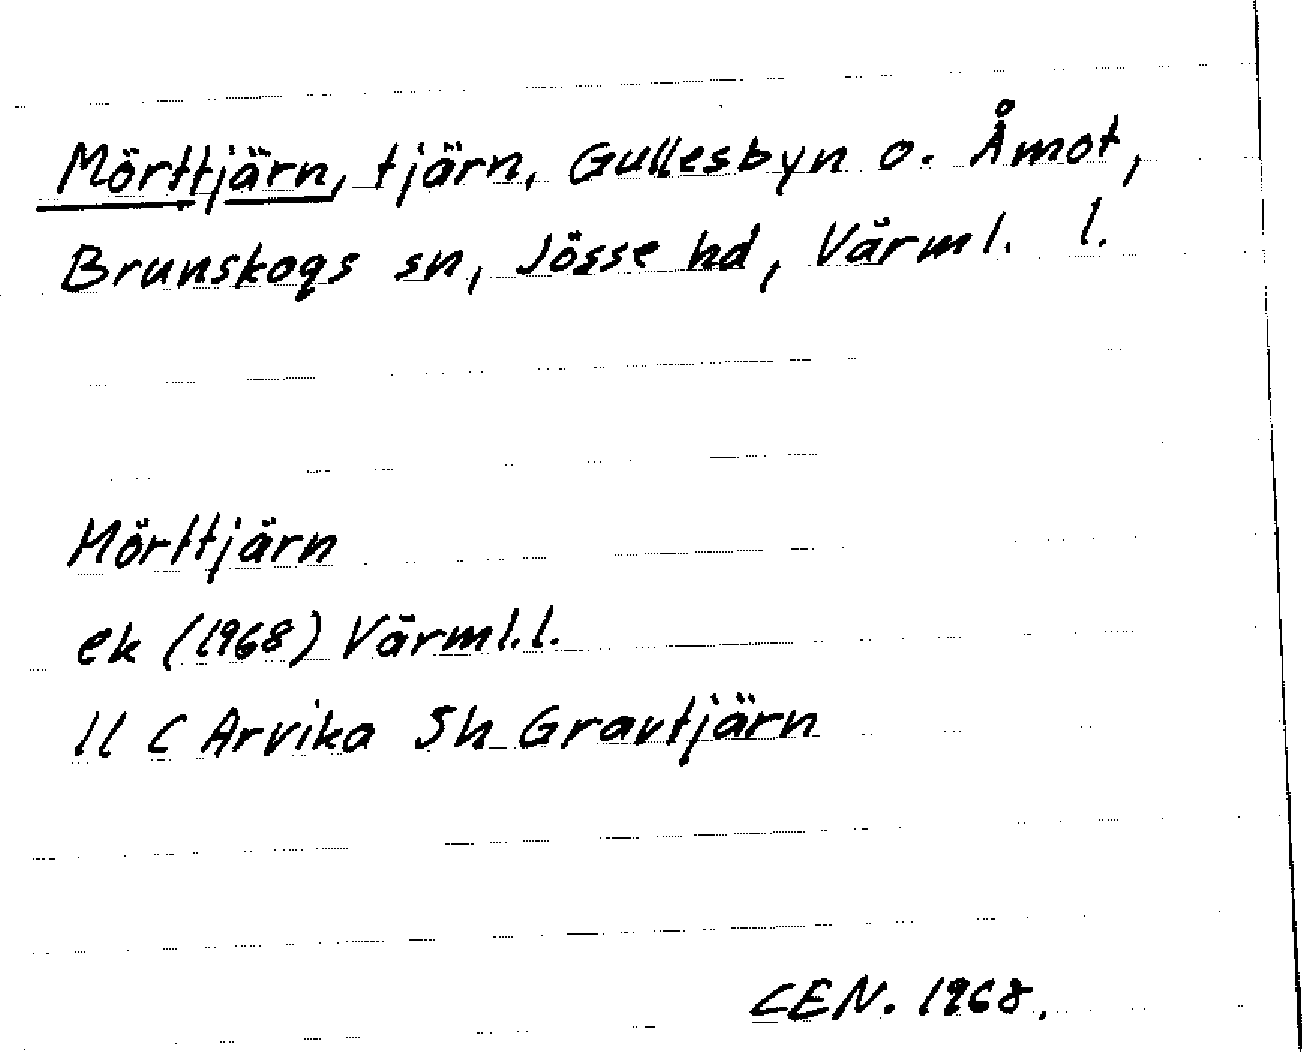 Mörttjärn, tjärn, Gullesbyn o. Åmot,
Brunskogs sn, Jösse hd, Värml. l.
Mörttjärn
ek (1968) Värml.l.
11 C Arvika Sh Gravtjärn
CEN. 1968.